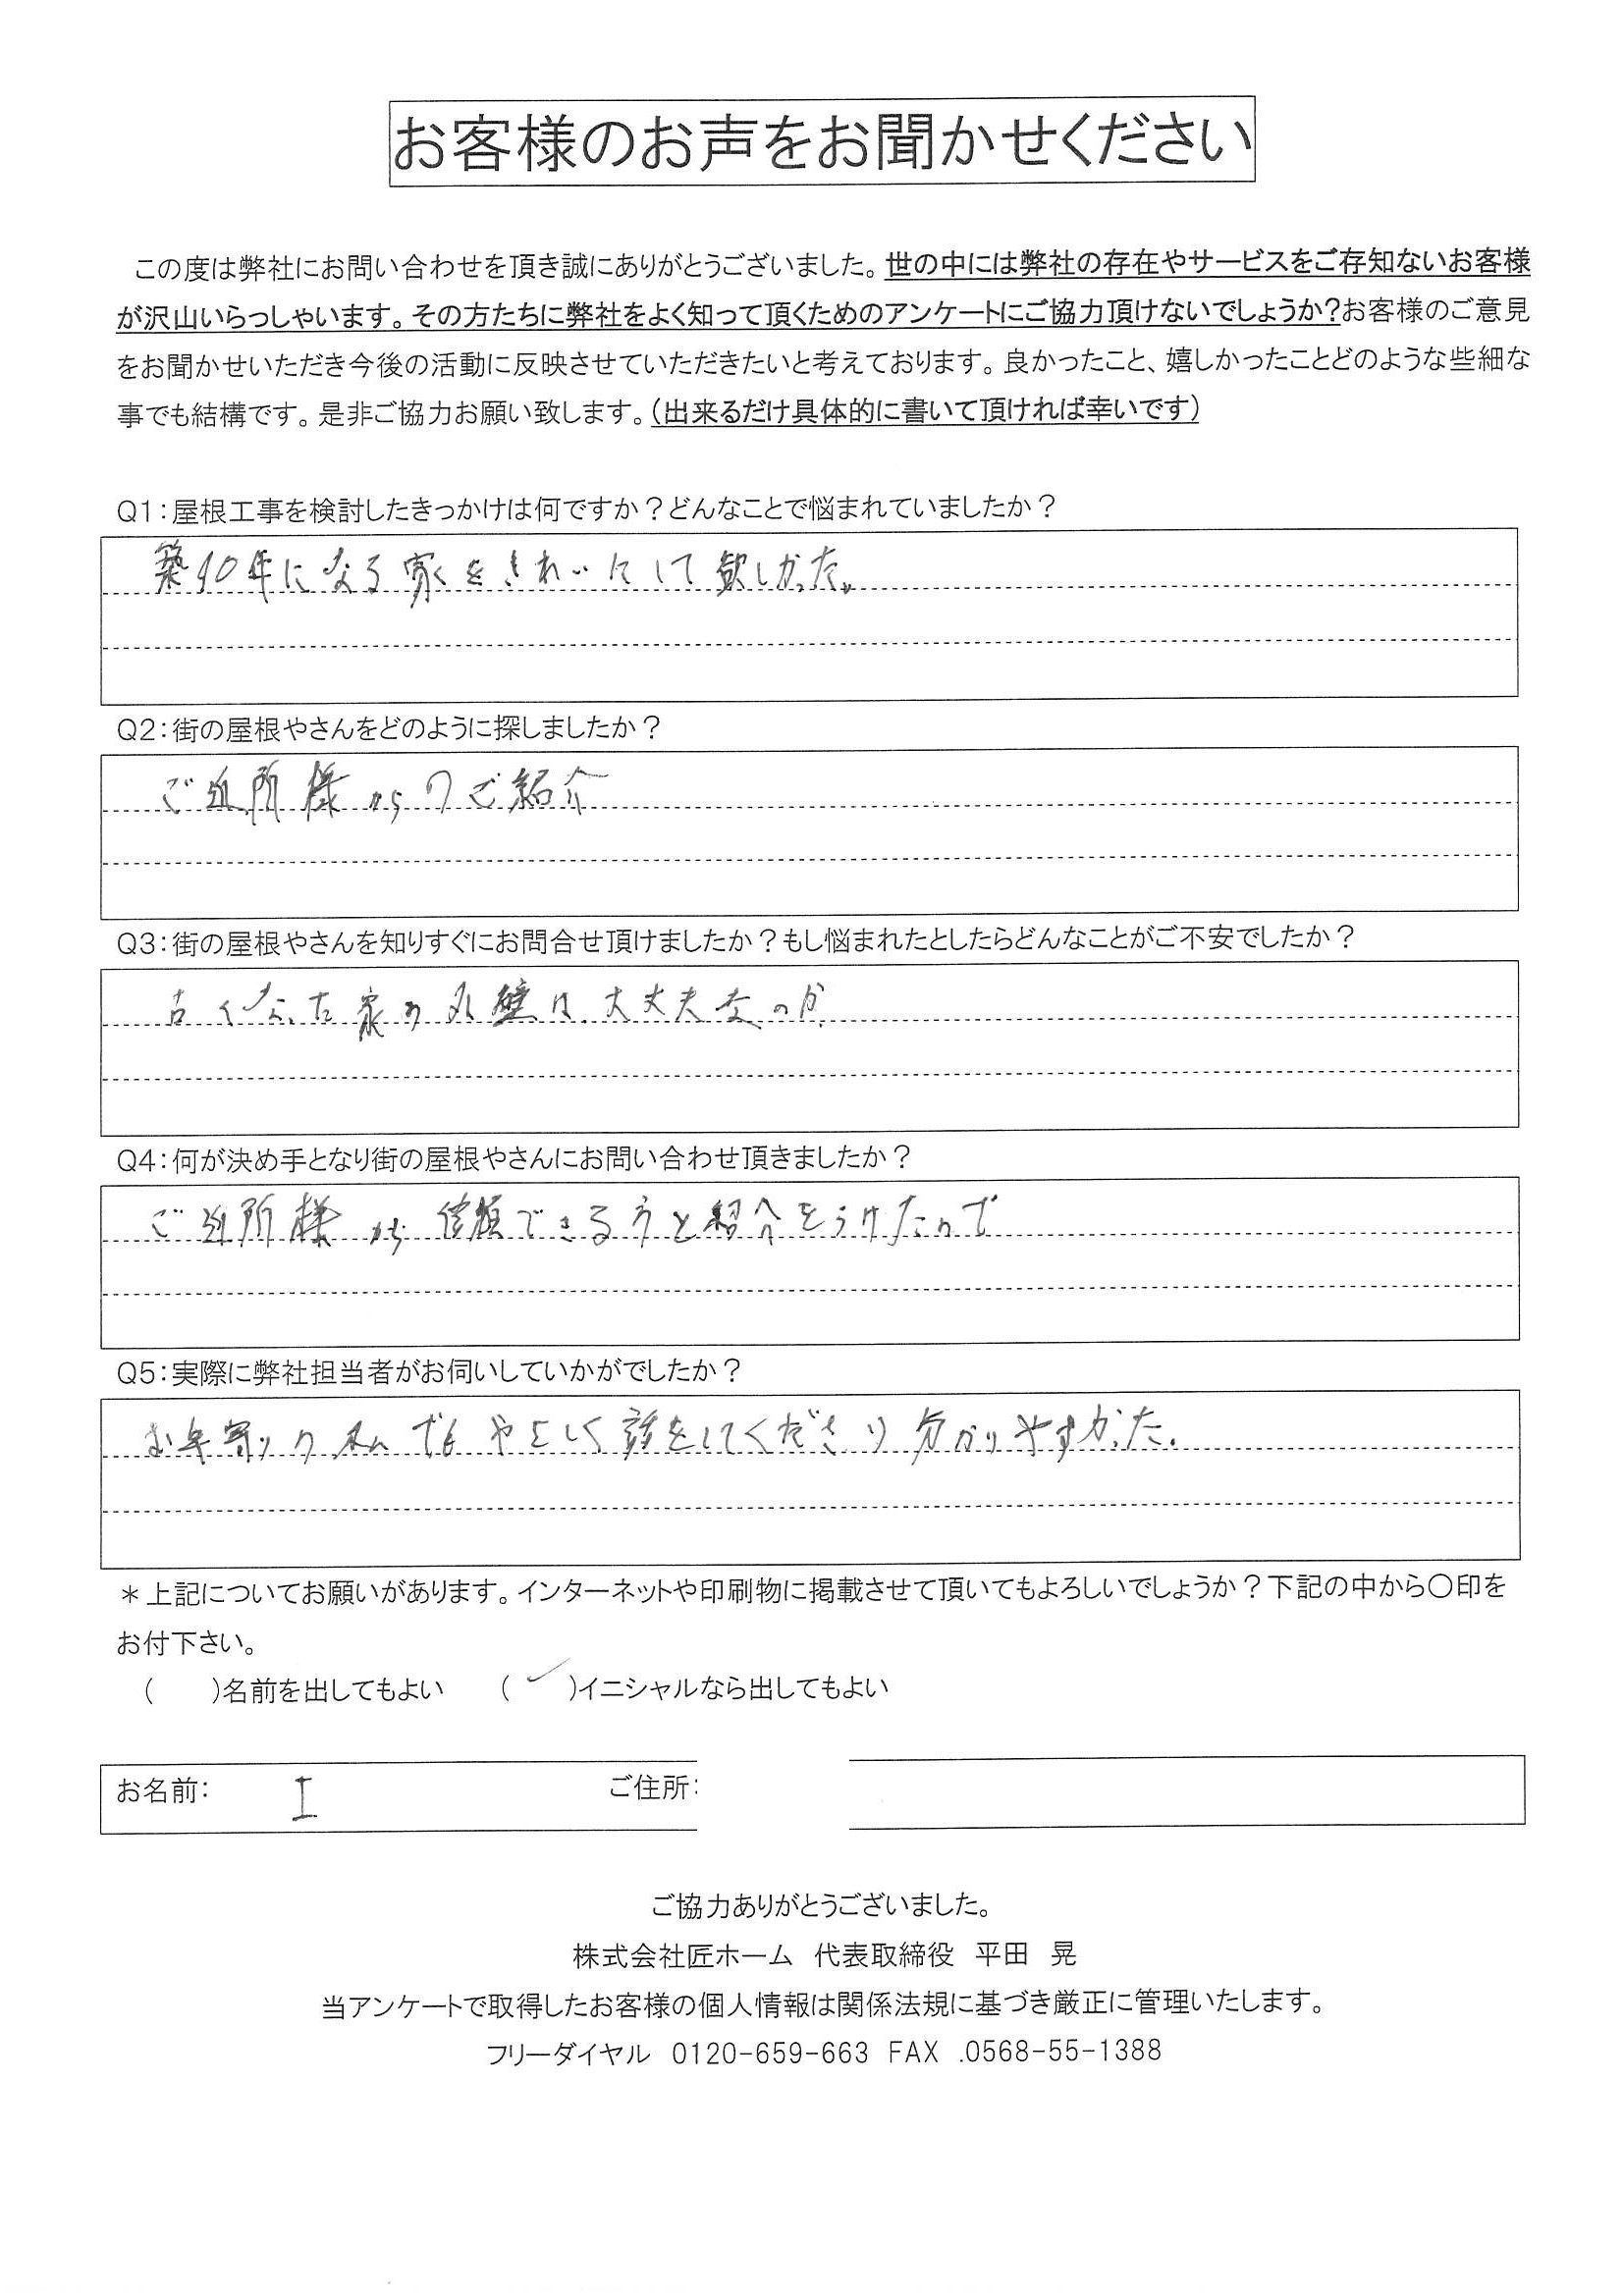 お客様のお声をお聞かせください
この度は弊社にお問い合わせを頂き誠にありがとうございました。世の中には弊社の存在やサービスをご存知ないお客様
が沢山いらっしゃいます。その方たちに弊社をよく知って頂くためのアンケートにご協力頂けないでしょうか?お客様のご意見
をお聞かせいただき今後の活動に反映させていただきたいと考えております。良かったこと、嬉しかったことどのような些細な
事でも結構です。是非ご協力お願い致します。(出来るだけ具体的に書いて頂ければ幸いです)
Q1:屋根工事を検討したきっかけは何ですか?どんなことで悩まれていましたか?
築40年になる家をきれいにして欲しかった。
Q2:街の屋根やさんをどのように探しましたか?
ご近所様からのご紹介
Q3:街の屋根やさんを知りすぐにお問合せ頂けましたか?もし悩まれたとしたらどんなことがご不安でしたか?
古くなった家の外壁は大丈夫なのか
Q4:何が決め手となり街の屋根やさんにお問い合わせ頂きましたか?
ご近所様から信頼できる方と紹介をうけたので
Q5:実際に弊社担当者がお伺いしていかがでしたか?
お年寄りの私でもやさしく話をしてくださり分かりやすかった。
*上記についてお願いがあります。インターネットや印刷物に掲載させて頂いてもよろしいでしょうか?下記の中から〇印を
お付下さい。
( )名前を出してもよい (✓)イニシャルなら出してもよい
お名前: I ご住所:
ご協力ありがとうございました。
株式会社匠ホーム 代表取締役 平田 晃
当アンケートで取得したお客様の個人情報は関係法規に基づき厳正に管理いたします。
フリーダイヤル 0120-659-663 FAX .0568-55-1388